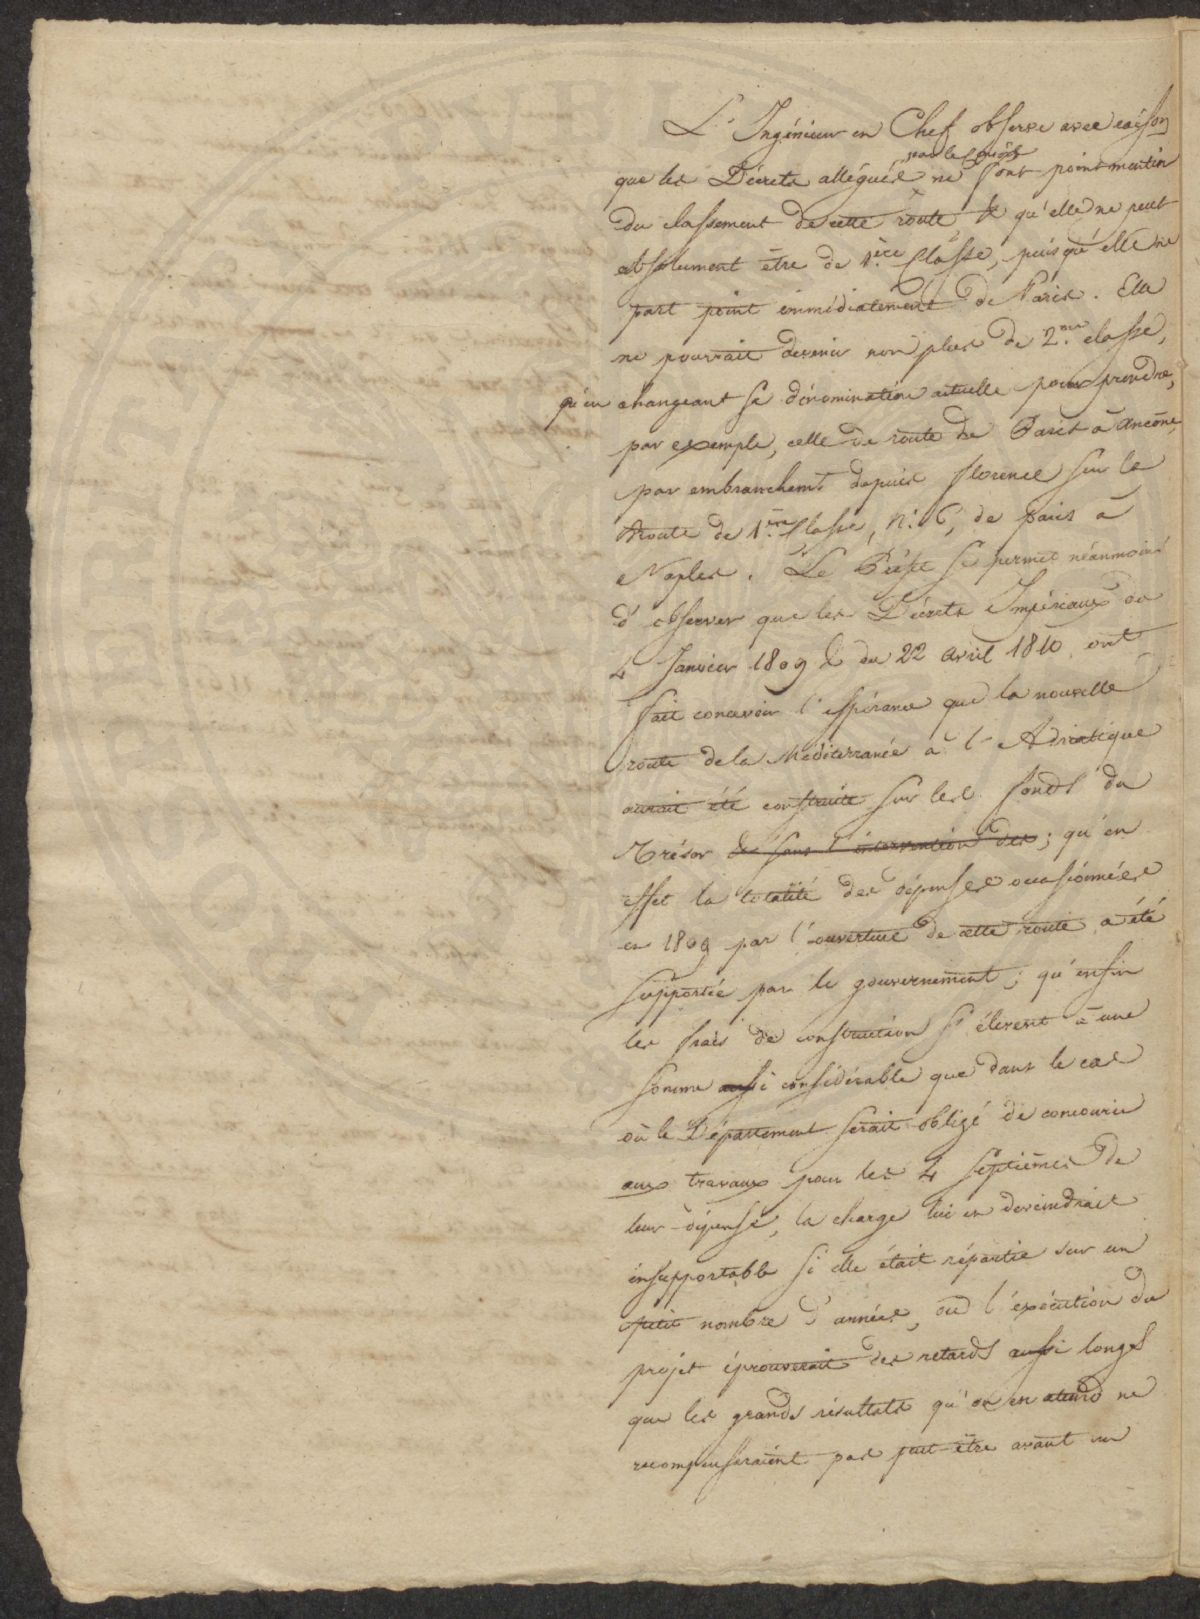 L'Ingénieur en Chef observe avec raison
par le
que les Décrets allégués ne font point mention
du classement de cette route & qu'elle ne peut
absolument être de 1.ère Classe, puisqu'elle ne
part point immédiatement de Paris. Elle
ne pourrait devenir non plus de 2.me classe,
qu'en changeant sa dénomination actuelle pour prendre,
par exemple, celle de route de Paris à Ancône,
par embranchem.t depuis florence sur la
Route de 1.ère Classe, N.° 6, de paris à
Naples. Le Préfet se permet néanmoins
d'observer que les Décrets Impériaux du
4 Janvier 1809 & du 22 avril 1810 ont
fait concevoir l'espérance que la nouvelle
route de la Méditerranée à l'Adriatique
aurait été construite sur les fonds du
Trésor & sans l'intervention des; qu'en
effet la totalité des dépenses occasionnées
en 1809 par l'ouverture de cette route a été
supportée par le gouvernement; qu'enfin
les frais de construction s'élevent à une
somme aussi considérable que dans le cas
où le Département serait obligé de concourir
aux travaux pour les 4 septièmes de
leur dépense, la charge lui en deviendrait
insupportable si elle était répartie sur un
petit nombre d'années, où l'exécution du
projet éprouverait des retards aussi longs
que les grands résultats qu'on en attend ne
recompenseraient pas peut-être avant un